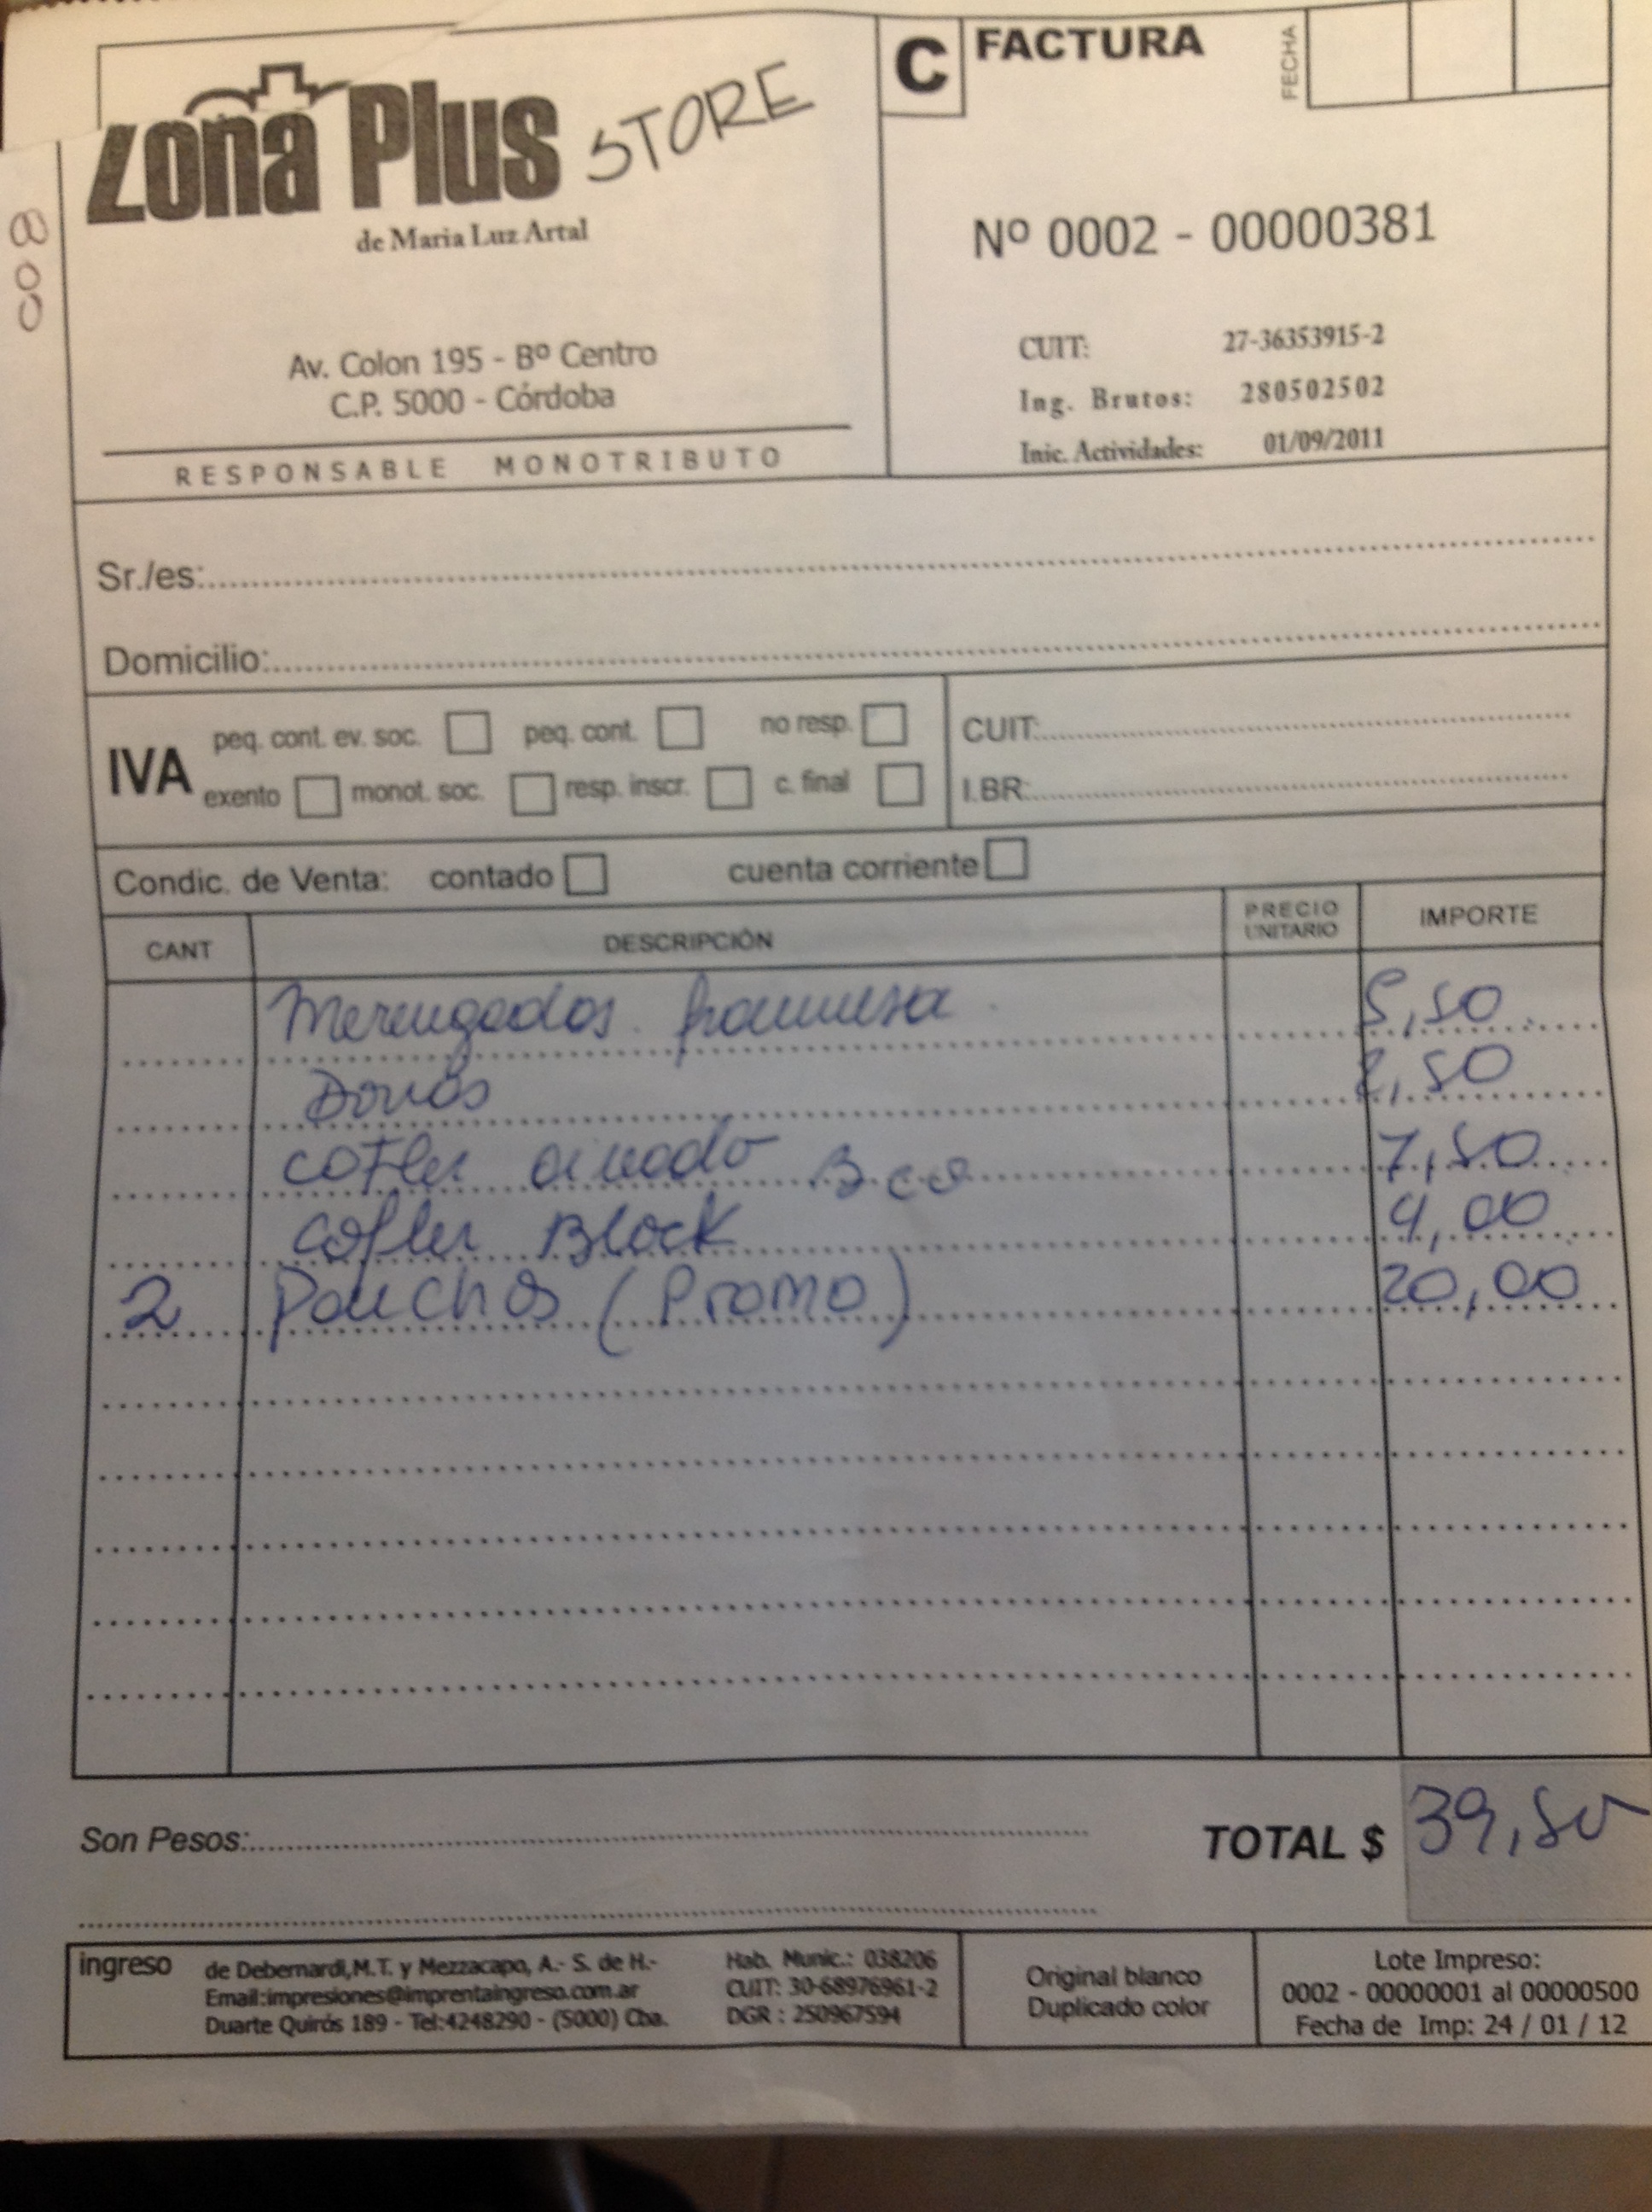 Zona Plus STORE
de Maria Luz Artal
Av. Colon 195 - Bº Centro
C.P. 5000 - Córdoba
RESPONSABLE MONOTRIBUTO
C FACTURA
FECHA
Nº 0002 - 00000381
CUIT: 27-36353915-2
Ing. Brutos: 280502502
Inic. Actividades: 01/09/2011
Sr./es:
Domicilio:
IVA
peq. cont. ev. soc. peq. cont. no resp.
exento monot. soc. resp. inscr. c. final
CUIT:
I.BR:
Condic. de Venta: contado cuenta corriente
CANT DESCRIPCIÓN PRECIO UNITARIO IMPORTE
Merengadas frambuesa 5,50
Donas 2,50
cofler aireado Bco 7,50
cofler Block 4,00
2 Panchos (Promo) 20,00
Son Pesos:
TOTAL $ 39,50
ingreso
de Debernardi,M.T. y Mezzacapo, A.- S. de H.-
Email:impresiones@imprentaingreso.com.ar
Duarte Quirós 189 - Tel:4248290 - (5000) Cba.
Hab. Munic.: 038206
CUIT: 30-68976961-2
DGR : 250967594
Original blanco
Duplicado color
Lote Impreso:
0002 - 00000001 al 00000500
Fecha de Imp: 24 / 01 / 12